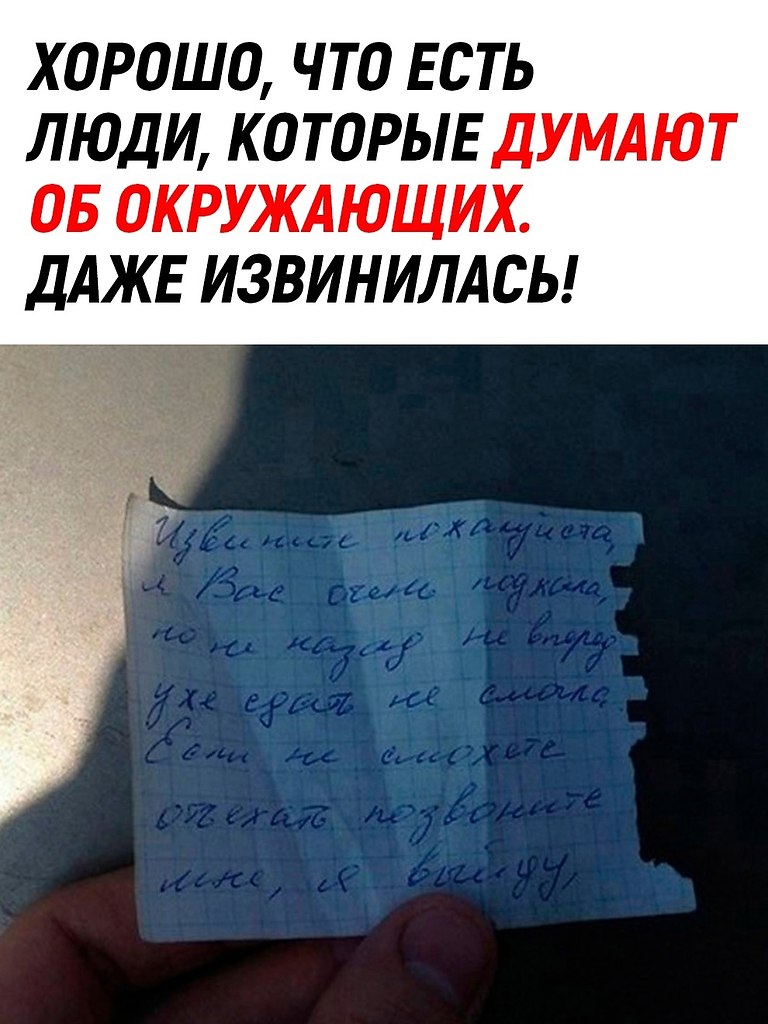 ХОРОШО, ЧТО ЕСТЬ
ЛЮДИ, КОТОРЫЕ ДУМАЮТ
ОБ ОКРУЖАЮЩИХ.
ДАЖЕ ИЗВИНИЛАСЬ!
Извините пожалуйста,
я Вас очень поджала,
но не назад не вперед
уже сдать не смогла.
Если не сможете
отъехать позвоните
мне, я выйду,